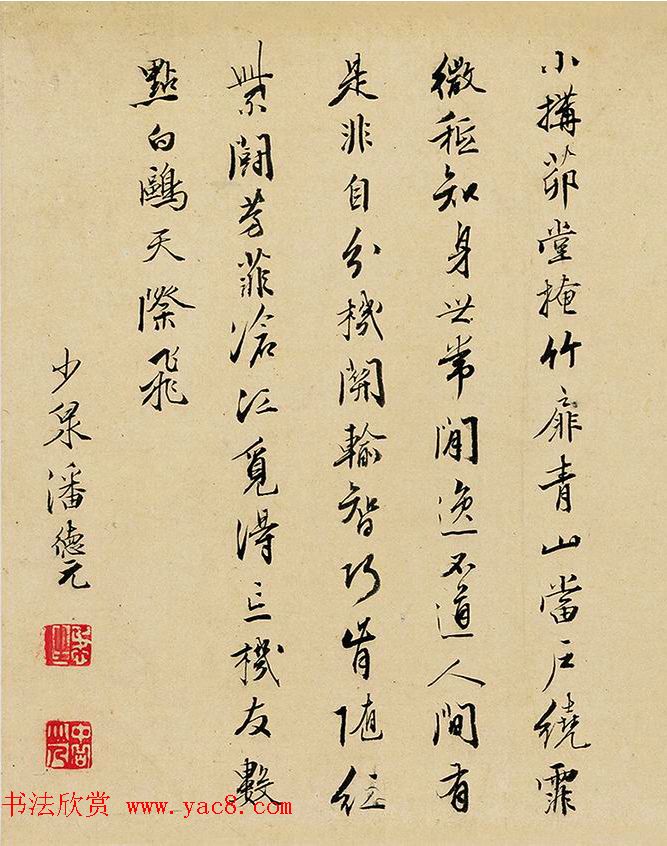 小構茆堂掩竹扉青山當戶繞霏
微秪知身世常閒逸不道人間有
是非自分機關輸智巧肯随紅
紫鬪芳菲滄江覓得忘機友數
點白鷗天際飛
少泉潘德元
书法欣赏 www.yac8.com